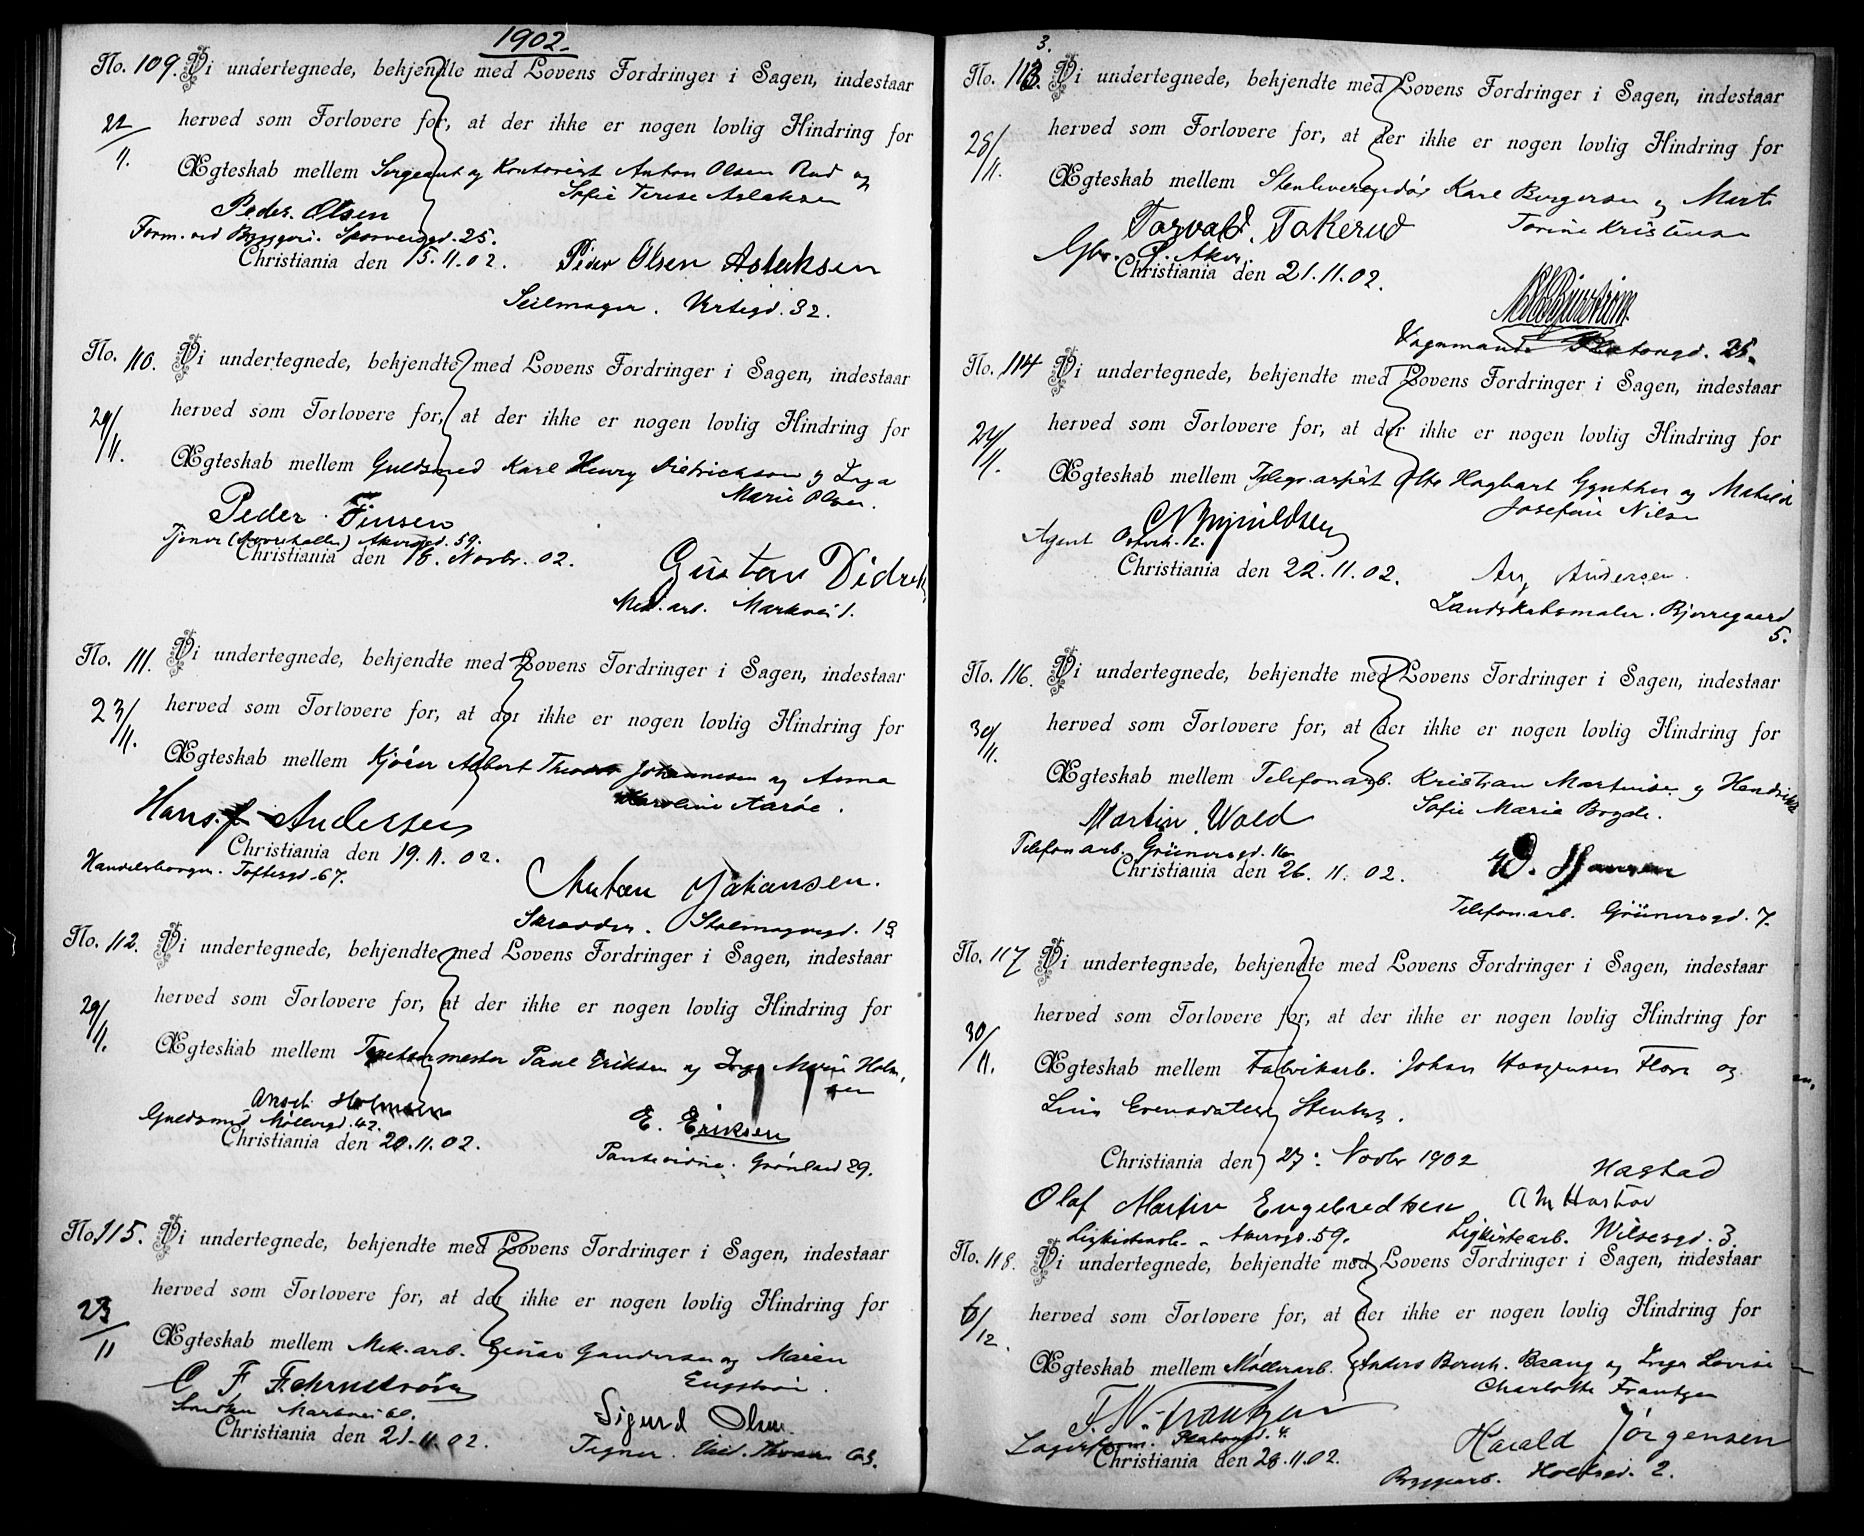 1902.
No. 109. Vi undertegnede, bekjendte med Lovens Fordringer i Sagen, indestaar
22/11. herved som Forlovere for, at der ikke er nogen lovlig Hindring for
Ægteskab mellem Sergeant og Kontorist Anton Olsen Rud og
Sofie Terese Aslaksen
Peder Olsen
Form. ved Bryggeri. Sporveisgd. 25.
Christiania den 15.11.02. Peder Olsen Aslaksen
Seilmager. Vertsgd. 32.
No. 110. Vi undertegnede, bekjendte med Lovens Fordringer i Sagen, indestaar
29/11. herved som Forlovere for, at der ikke er nogen lovlig Hindring for
Ægteskab mellem Guldsmed Karl Henry Dietrichson og Inga
Marie Olsen.
Peder Finsen
Tjener Akersgd. 59.
Christiania den 18. Novbr. 02. Gustav
Mek. arb. Markvei 1.
No. 111. Vi undertegnede, bekjendte med Lovens Fordringer i Sagen, indestaar
23/11. herved som Forlovere for, at der ikke er nogen lovlig Hindring for
Ægteskab mellem Kjører Albert Theodor Johannesen og Anna
Karoline Aarøe.
Hans J. Andersen
Christiania den 19.11.02.
Handelsborger. Toftesgd. 67.
Anton Johansen.
Skrædder. Stolmagergd. 13
No. 112. Vi undertegnede, bekjendte med Lovens Fordringer i Sagen, indestaar
29/11. herved som Forlovere for, at der ikke er nogen lovlig Hindring for
Ægteskab mellem Tapetsermester Paul Eriksen og Inga Marie Holm-
sen
Ansch Holmsen
Guldsmed Møllergd. 42. E. Eriksen
Christiania den 20.11.02. Grønland 29.
No. 115. Vi undertegnede, bekjendte med Lovens Fordringer i Sagen, indestaar
23/11 herved som Forlovere for, at der ikke er nogen lovlig Hindring for
Ægteskab mellem Mek. arb. Einar Gundersen og Maren
C F Fehrnstrøm
Markvei 60. Sigurd Olsen
Christiania den 21.11.02. Tegner.
3.
No. 113. Vi undertegnede, bekjendte med Lovens Fordringer i Sagen, indestaar
28/11. herved som Forlovere for, at der ikke er nogen lovlig Hindring for
Ægteskab mellem Stenleverandør Karl Borgersen og Marte
Torine Kristensen
Torvald Tokerud
Gbr. Aker.
Christiania den 21.11.02.
Vognmand. Platousgd. 25.
No. 114 Vi undertegnede, bekjendte med Lovens Fordringer i Sagen, indestaar
24/11. herved som Forlovere for, at der ikke er nogen lovlig Hindring for
Ægteskab mellem Otto Hagbart Gynther og Matilde
Josefine Nilsen
Agent
Christiania den 22.11.02. Andersen.
Landskabsmaler. Bjerregaard
5.
No. 116. Vi undertegnede, bekjendte med Lovens Fordringer i Sagen, indestaar
30/11. herved som Forlovere for, at der ikke er nogen lovlig Hindring for
Ægteskab mellem Telefonarb. Kristian Martinsen og Hendrikke
Sofie Marie Bogde.
Martin Wold
Telefonarb. Grünersgd. 16
Christiania den 26.11.02. W. Hansen
Telefonarb. Grünersgd. 7.
No. 117 Vi undertegnede, bekjendte med Lovens Fordringer i Sagen, indestaar
30/11. herved som Forlovere for, at der ikke er nogen lovlig Hindring for
Ægteskab mellem Fabrikarb. Johan Haagensen Flor og
Lina Evensdatter
Christiania den 27. Novbr 1902 Hastad
Olaf Martin Engebredtsen A M Hastad
Ligkistearb. Akersgd. 59. Ligkistearb. Wilsesgd. 3.
No. 118. Vi undertegnede, bekjendte med Lovens Fordringer i Sagen, indestaar
6/12. herved som Forlovere for, at der ikke er nogen lovlig Hindring for
Ægteskab mellem Møllerarb. Anders Bernh. Baang og Inga Lovise
Charlotte Frantzen
F. N. Frantzen
Lagerform. Platousgd. 4. Harald Jørgensen
Christiania den 28.11.02.
Bryggarb. Holtsgd. 2.